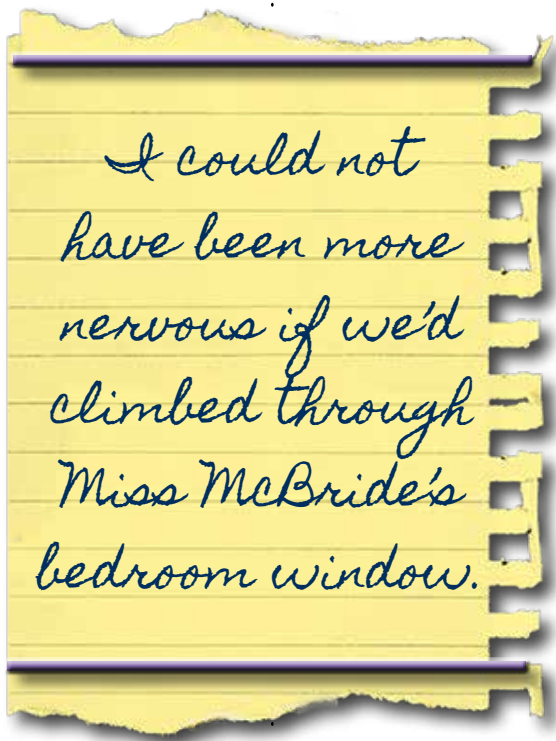 I could not
have been more
nervous if we'd
climbed through
Miss McBride's
bedroom window.